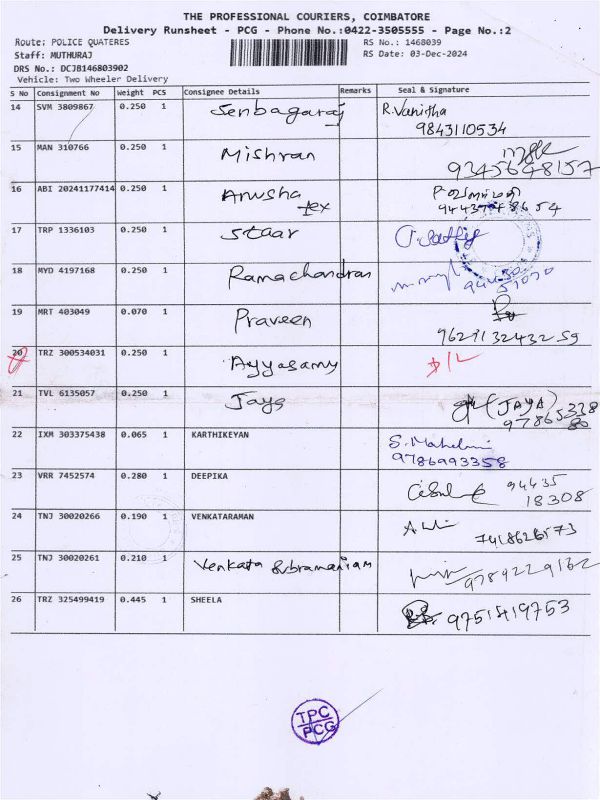 THE PROFESSIONAL COURIERS, COIMBATORE
Delivery Runsheet - PCG - Phone No.:0422-3505555 - Page No.:2
Route: POLICE QUATERES
RS No.: 1468039
Staff: MUTHURAJ
RS Date: 03-Dec-2024
DRS No.: DCJB146803902
Vehicle: Two Wheeler Delivery
S No Consignment No Weight PCS Consignee Details Remarks Seal & Signature
14 SVM 3809867 0.250 1 Senbagaraj R.Vanitha
9843110534
15 MAN 310766 0.250 1 Mishran
9345648157
16 ABI 20241177414 0.250 1 Anusha
tex
17 TRP 1336103 0.250 1 Staar
18 MYD 4197168 0.250 1 Ramachandran
19 MRT 403049 0.070 1 Praveen
20 TRZ 300534031 0.250 1 Ayyasamy D/L
21 TVL 6135057 0.250 1 Jaya (JAYA)
22 IXM 303375438 0.065 1 KARTHIKEYAN
9786993358
23 VRR 7452574 0.280 1 DEEPIKA 94435
18308
24 TNJ 30020266 0.190 1 VENKATARAMAN
7418626573
25 TNJ 30020261 0.210 1 Venkata Subramaniam
9789229162
26 TRZ 325499419 0.445 1 SHEELA 9751419753
TPC
PCG